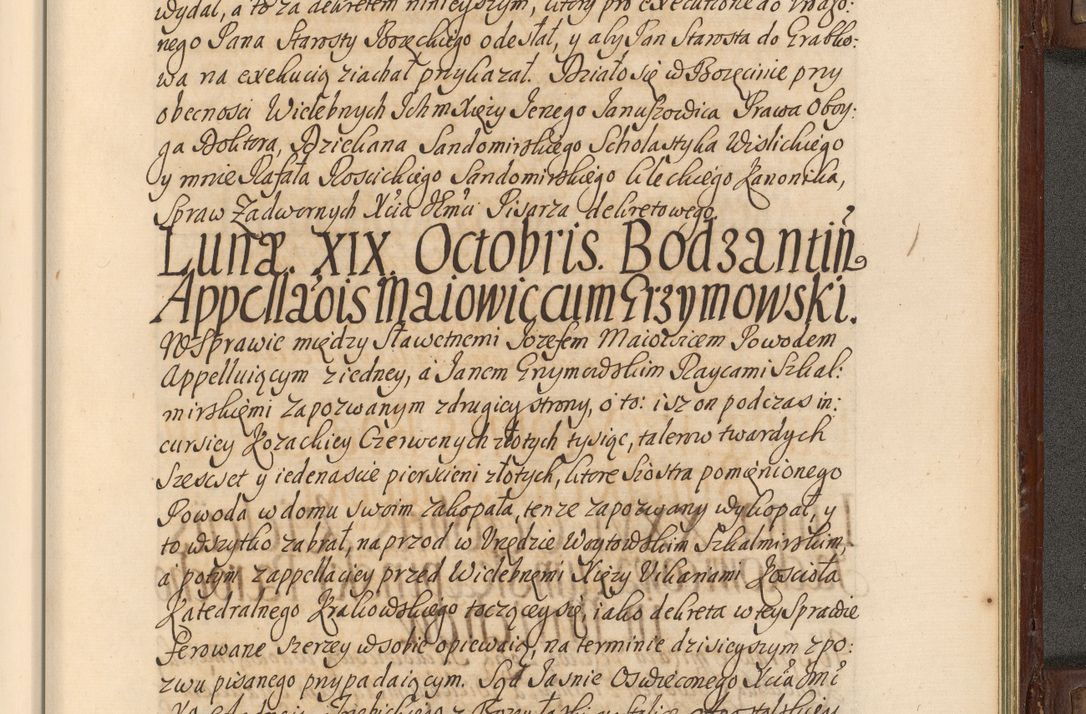 wydał, a to za dekretem ninieyszym, ktory pro executione do Urodzo:
nego Pana Starosty Borzęckiego odesłał, y aby Pan Starosta do Grabko:
wa na exekucią ziachał przykazał. Działo się w Borzęcinie przy
obecnosci Wielebnych Ichm Xięży Jerzego Januszowica Prawa Oboy:
ga Doktora, Dziekana Sandomirskiego Scholastyka Wislickiego
y mnie Rafała Roscickiego Sandomirskiego Kieleckiego Kanonika,
Spraw Zadwornych Xcia JEmci Pisarza dekretowego.
Lunæ. XIX. Octobris. Bodzantin
Appellaōis Maiowic cum Grzymowski.
W Sprawie między Sławetnemi Jozefem Maiowicem Powodem
Appelluiącym z iedney, a Janem Grzymowskim Raycami Szkal:
mirskiemi Zapozwanym z drugiey strony, o to: isz on podczas in:
cursiey Kozackiey Czerwonych złotych tysiąc, talerow twardych
szescset y iedenascie pierscieni złotych, ktore siostra pomienionego
Powoda w domu swoim zakopała, tenze zapozwany wykopał, y
to wszytko zabrał, naprzod w Urzędzie Woytowskim Szkalmirskim,
a potym z appellaciey przed Wielebnemi Xięży Vikariami Koscioła
Katedralnego Krakowskiego toczącey się, iako dekreta w tey Sprawie
Ferowane szerzey w sobie opiewaią, na terminie dzisieyszym z po:
zwu pisanego przypadaiącym. Sąd Jasnie Oswieconego Xcia JEmci